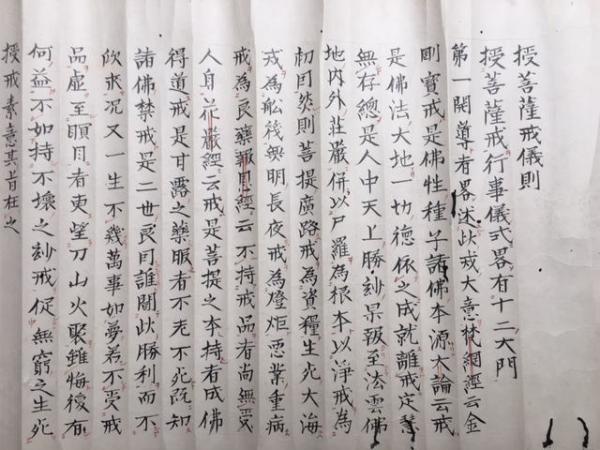 授菩薩戒儀則
授菩薩戒行事儀式畧有十二大門
第一開導者畧述此戒大意梵網經云金
剛寳戒是佛性種子諸佛本源大論云戒
是佛法大地一切德依之成就離戒定慧
無存總是人中天上勝玅果報至法雲佛
地内外莊嚴併以尸羅為根本以淨戒為
初因然則菩提廣路戒為資糧生死大海
戒為舩筏無明長夜戒為燈炬惡業重病
戒為良藥報恩經云不持戒品者尚無受
人身花嚴經云戒是菩提之本持者成佛
得道戒是甘露之藥服者不老不死既知
諸佛禁戒是二世良因誰關此勝利而不
欣求况又一生不幾萬事如夢若不受戒
品虛至瞑目者更望刀山火聚雖悔後有
何益不如持不壞之玅戒促無窮之生死
授戒素意其旨在之